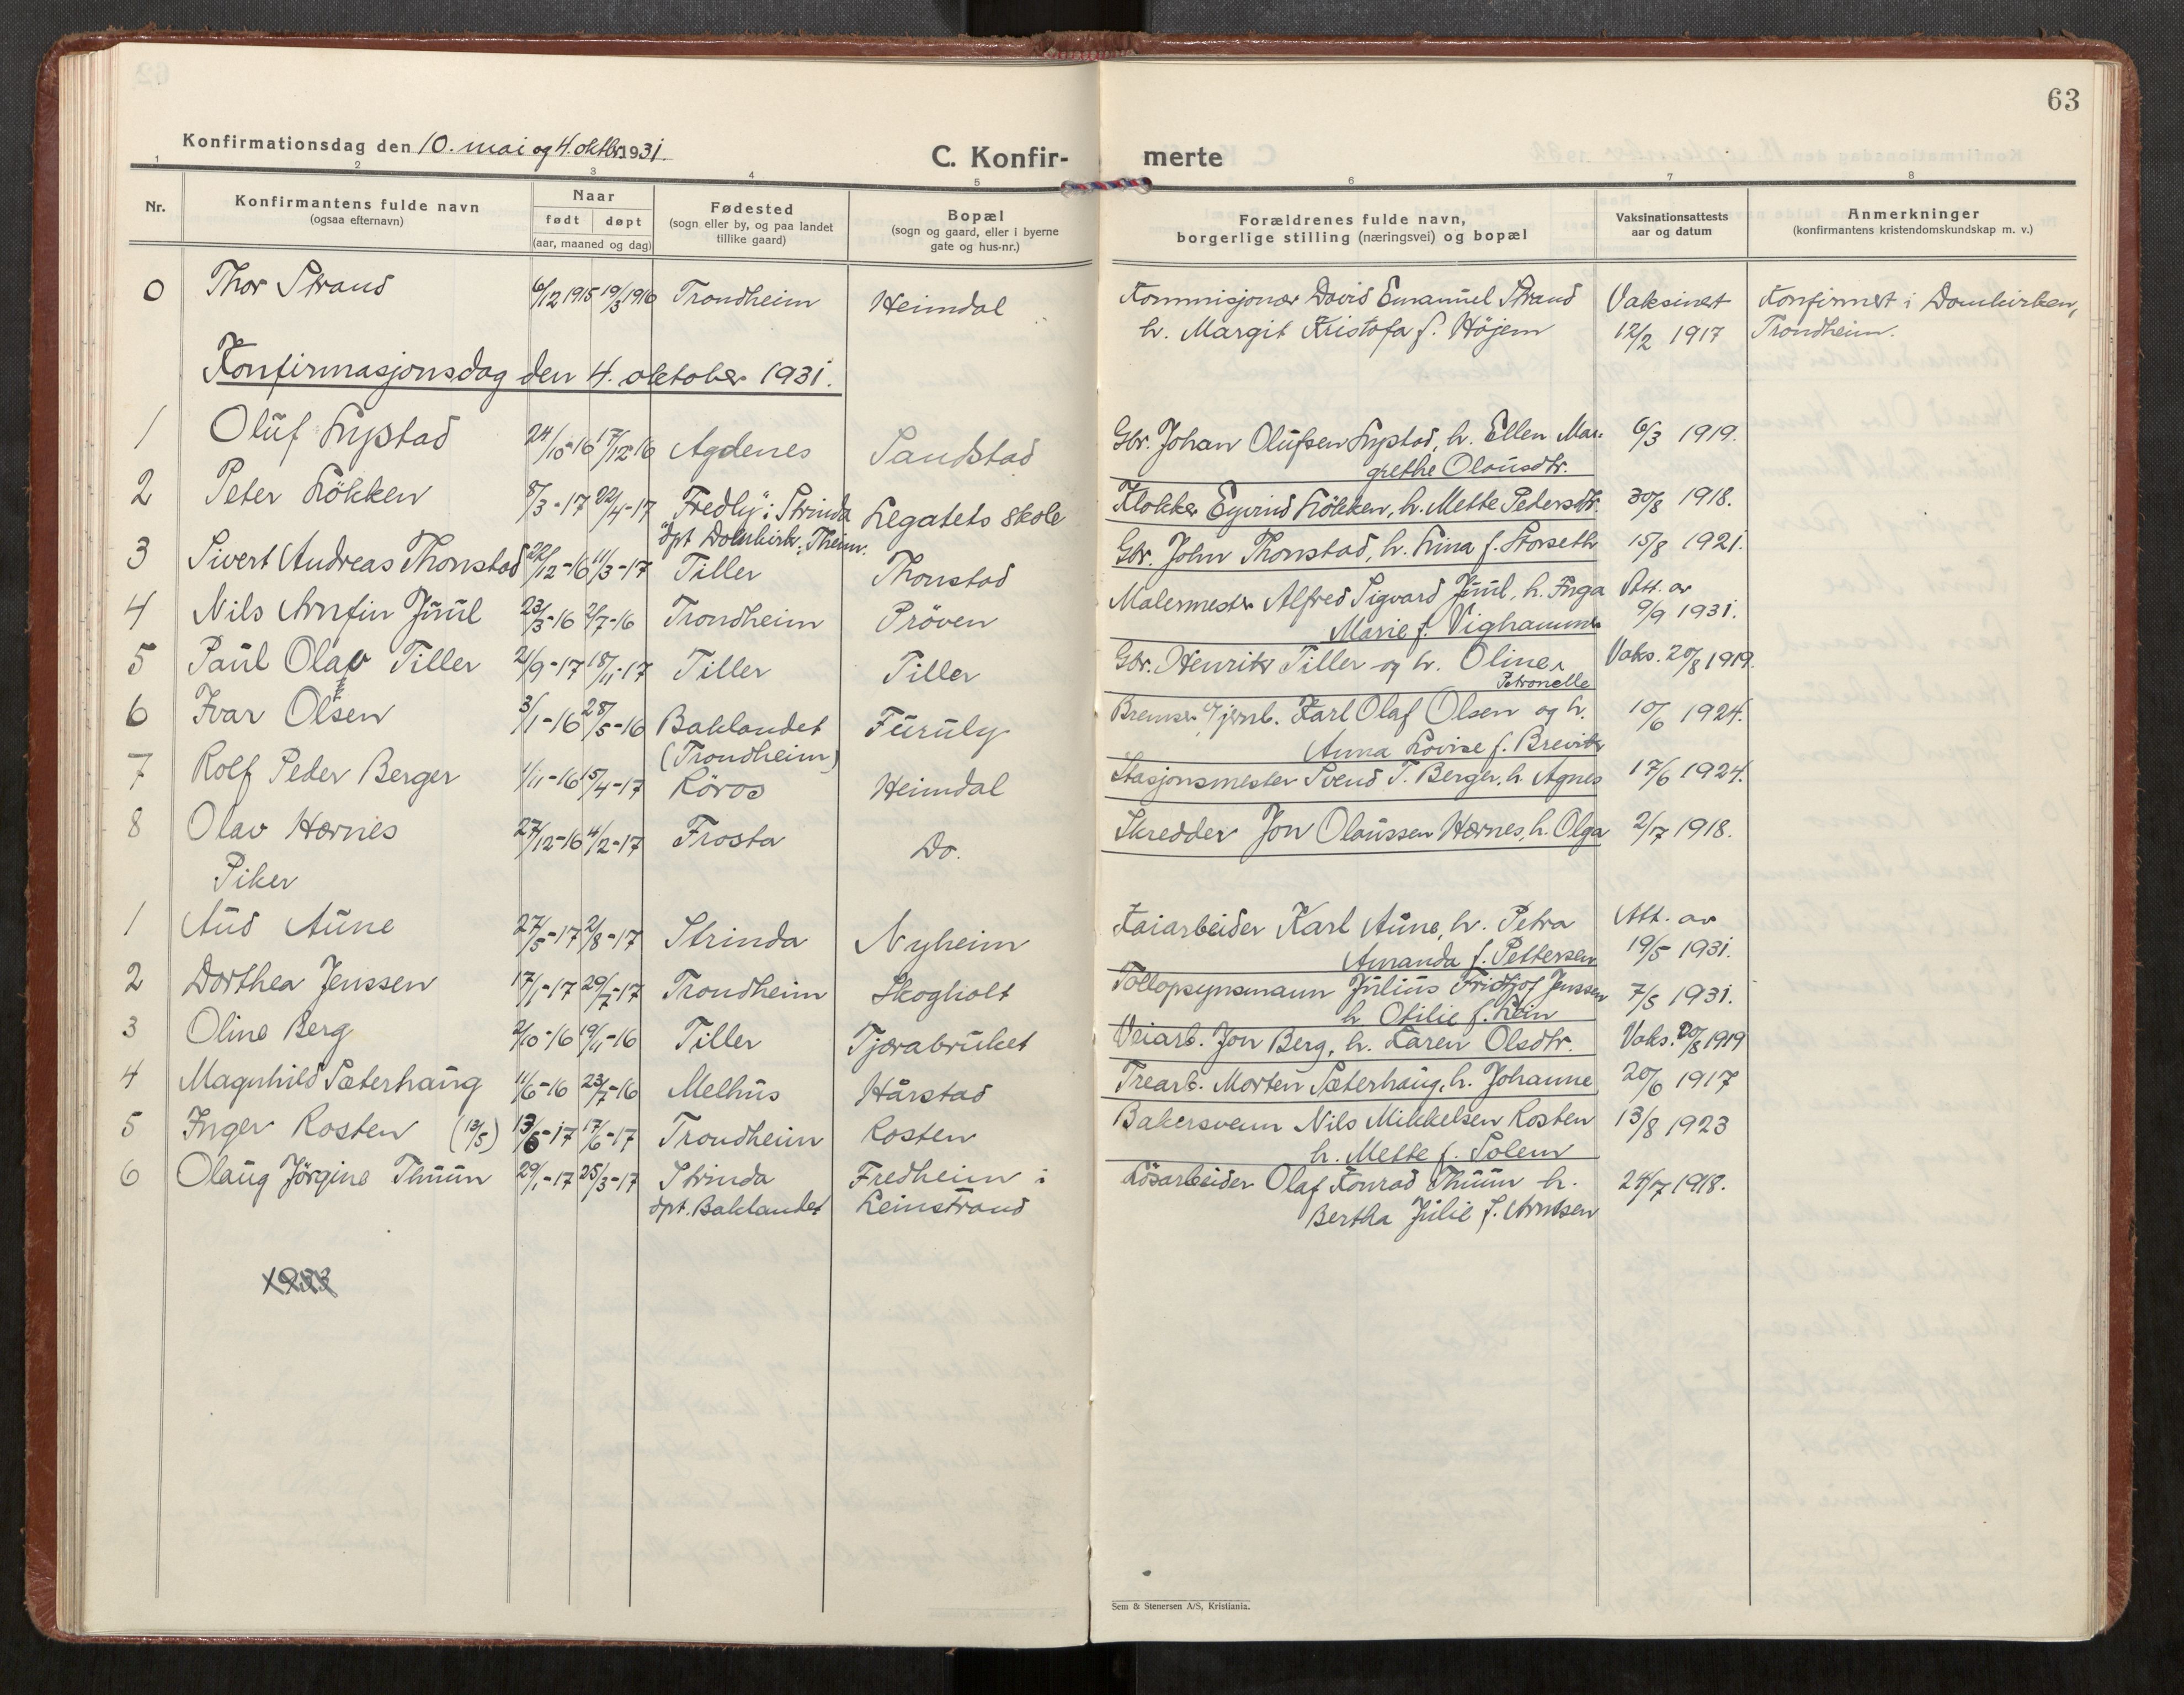 63
Konfirmationsdag den 10. mai og 4. oktbr. 1931.
C. Konfir- merte
1 2 3 4 5 6 7 8
Nr.
Konfirmantens fulde navn
(ogsaa efternavn)
Naar
født døpt
(aar, maaned og dag)
Fødested
(sogn eller by, og paa landet
tillike gaard)
Bopæl
(sogn og gaard, eller i byerne
gate og hus-nr.)
Forældrenes fulde navn,
borgerlige stilling (næringsvei) og bopæl
Vaksinationsattests
aar og datum
Anmerkninger
(konfirmantens kristendomskundskap m. v.)
0 Thor Strand 6/12 1915 19/3 1916 Trondheim Heimdal Kommisjonær David Emanuel Strand Vaksinert Konfirmert i Domkirken,
h. Margit Kristofa f. Höjem 12/2 1917 Trondheim.
Konfirmasjonsdag den 4. oktober 1931.
1 Oluf Lystad 24/10-16 17/12-16 Agdenes Sandstad Gbr. Johan Olufsen Lystad, h. Ellen Mar- 6/3 1919.
grethe Olausdtr.
2 Peter Lökken 8/3-17 22/4-17 "Fredly" i Strinda Legatets skole Klokker Eyvind Lökken, h. Mette Pedersdtr. 30/8 1918.
dpt Domkirk. Theim.
3 Sivert Andreas Thonstad 22/12-16 11/3-17 Tiller Thonstad Gbr. John Thonstad, h. Lina f. Storseth 15/8 1921.
4 Nils Arnfin Juul 23/3-16 2/7-16 Trondheim Pröven Malermester Alfred Sigvard Juul, h. Inga Att. av
Marie f. Vighammer 9/9 1931.
5 Paul Olav Tiller 21/9-17 18/11-17 Tiller Tiller Gbr. Henrik Tiller og h. Oline Vaks. 20/8 1919.
Petronelle
6 Ivar Olsen 3/1-16 28/5-16 Baklandet Furuly Bremser v/jernb. Karl Olaf Olsen og h. 10/6 1924.
(Trondheim) Anna Lovise f. Brevik
7 Rolf Peder Berger 1/11-16 15/4-17 Röros Heimdal Stasjonsmester Svend T. Berger, h. Agnes 17/6 1924.
8 Olav Hernes 27/12-16 4/2-17 Frosta Do. Skredder Jon Olaussen Hernes, h. Olga 2/7 1918.
Piker
1 Aud Aune 27/5-17 2/8-17 Strinda Nyheim Kaiarbeider Karl Aune, h. Petra Att. av
Amanda f. Pettersen 19/5 1931.
2 Dorthea Jenssen 17/1-17 29/7-17 Trondheim Skogholt Tollopsynsmann Julius Fridtjof Jenssen 7/5 1931.
h. Otilie f. Lein
3 Oline Berg 2/10-16 19/11-16 Tiller Tjærabruket Veiarb. Jon Berg, h. Karen Olsdtr. Vaks. 20/8 1919
4 Magnhild Sæterhaug 11/6-16 23/7-16 Melhus Hårstad Trearb. Morten Sæterhaug, h. Johanne 20/6 1917
5 Inger Rosten (13/5) 13/5-17 17/6-17 Trondheim Rosten Bakersvenn Nils Mikkelsen Rosten 13/8 1923
h. Mette f. Solem
6 Olaug Jörgine Thuun 29/1-17 25/3-17 Strinda Fredheim i Lösarbeider Olaf Konrad Thuun h. 24/7 1918.
dpt. Baklandet Leinstrand Bertha Julie f. Arntsen
Sem & Stenersen A/S, Kristiania.